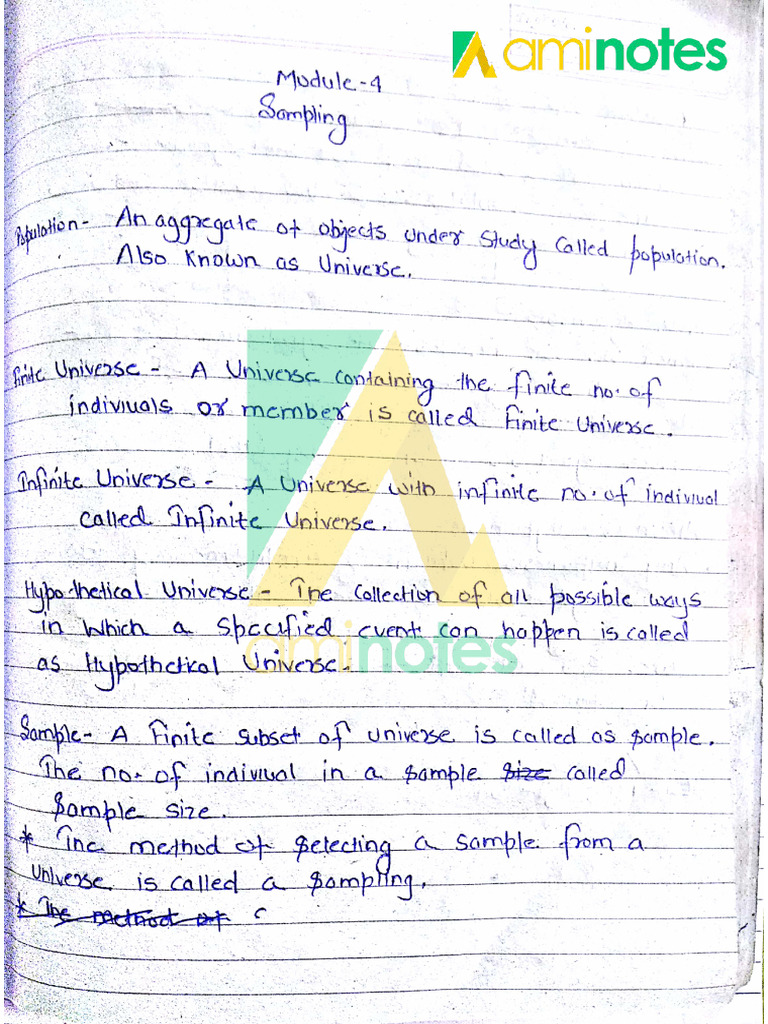 aminotes
Module-4
Sampling
Population- An aggregate of objects under study called population.
Also known as Universe.
Finite Universe - A Universe containing the finite no. of
indiviuals or member is called Finite Universe.
Infinite Universe - A Universe with infinite no. of indiviual
called Infinite Universe.
Hypothetical Universe - The collection of all possible ways
in which a specified event can happen is called
as Hypothetical Universe.
aminotes
Sample- A finite subset of universe is called as sample.
The no. of indiviual in a sample size called
sample size.
* The method of selecting a sample from a
Universe is called a sampling.
* The method of